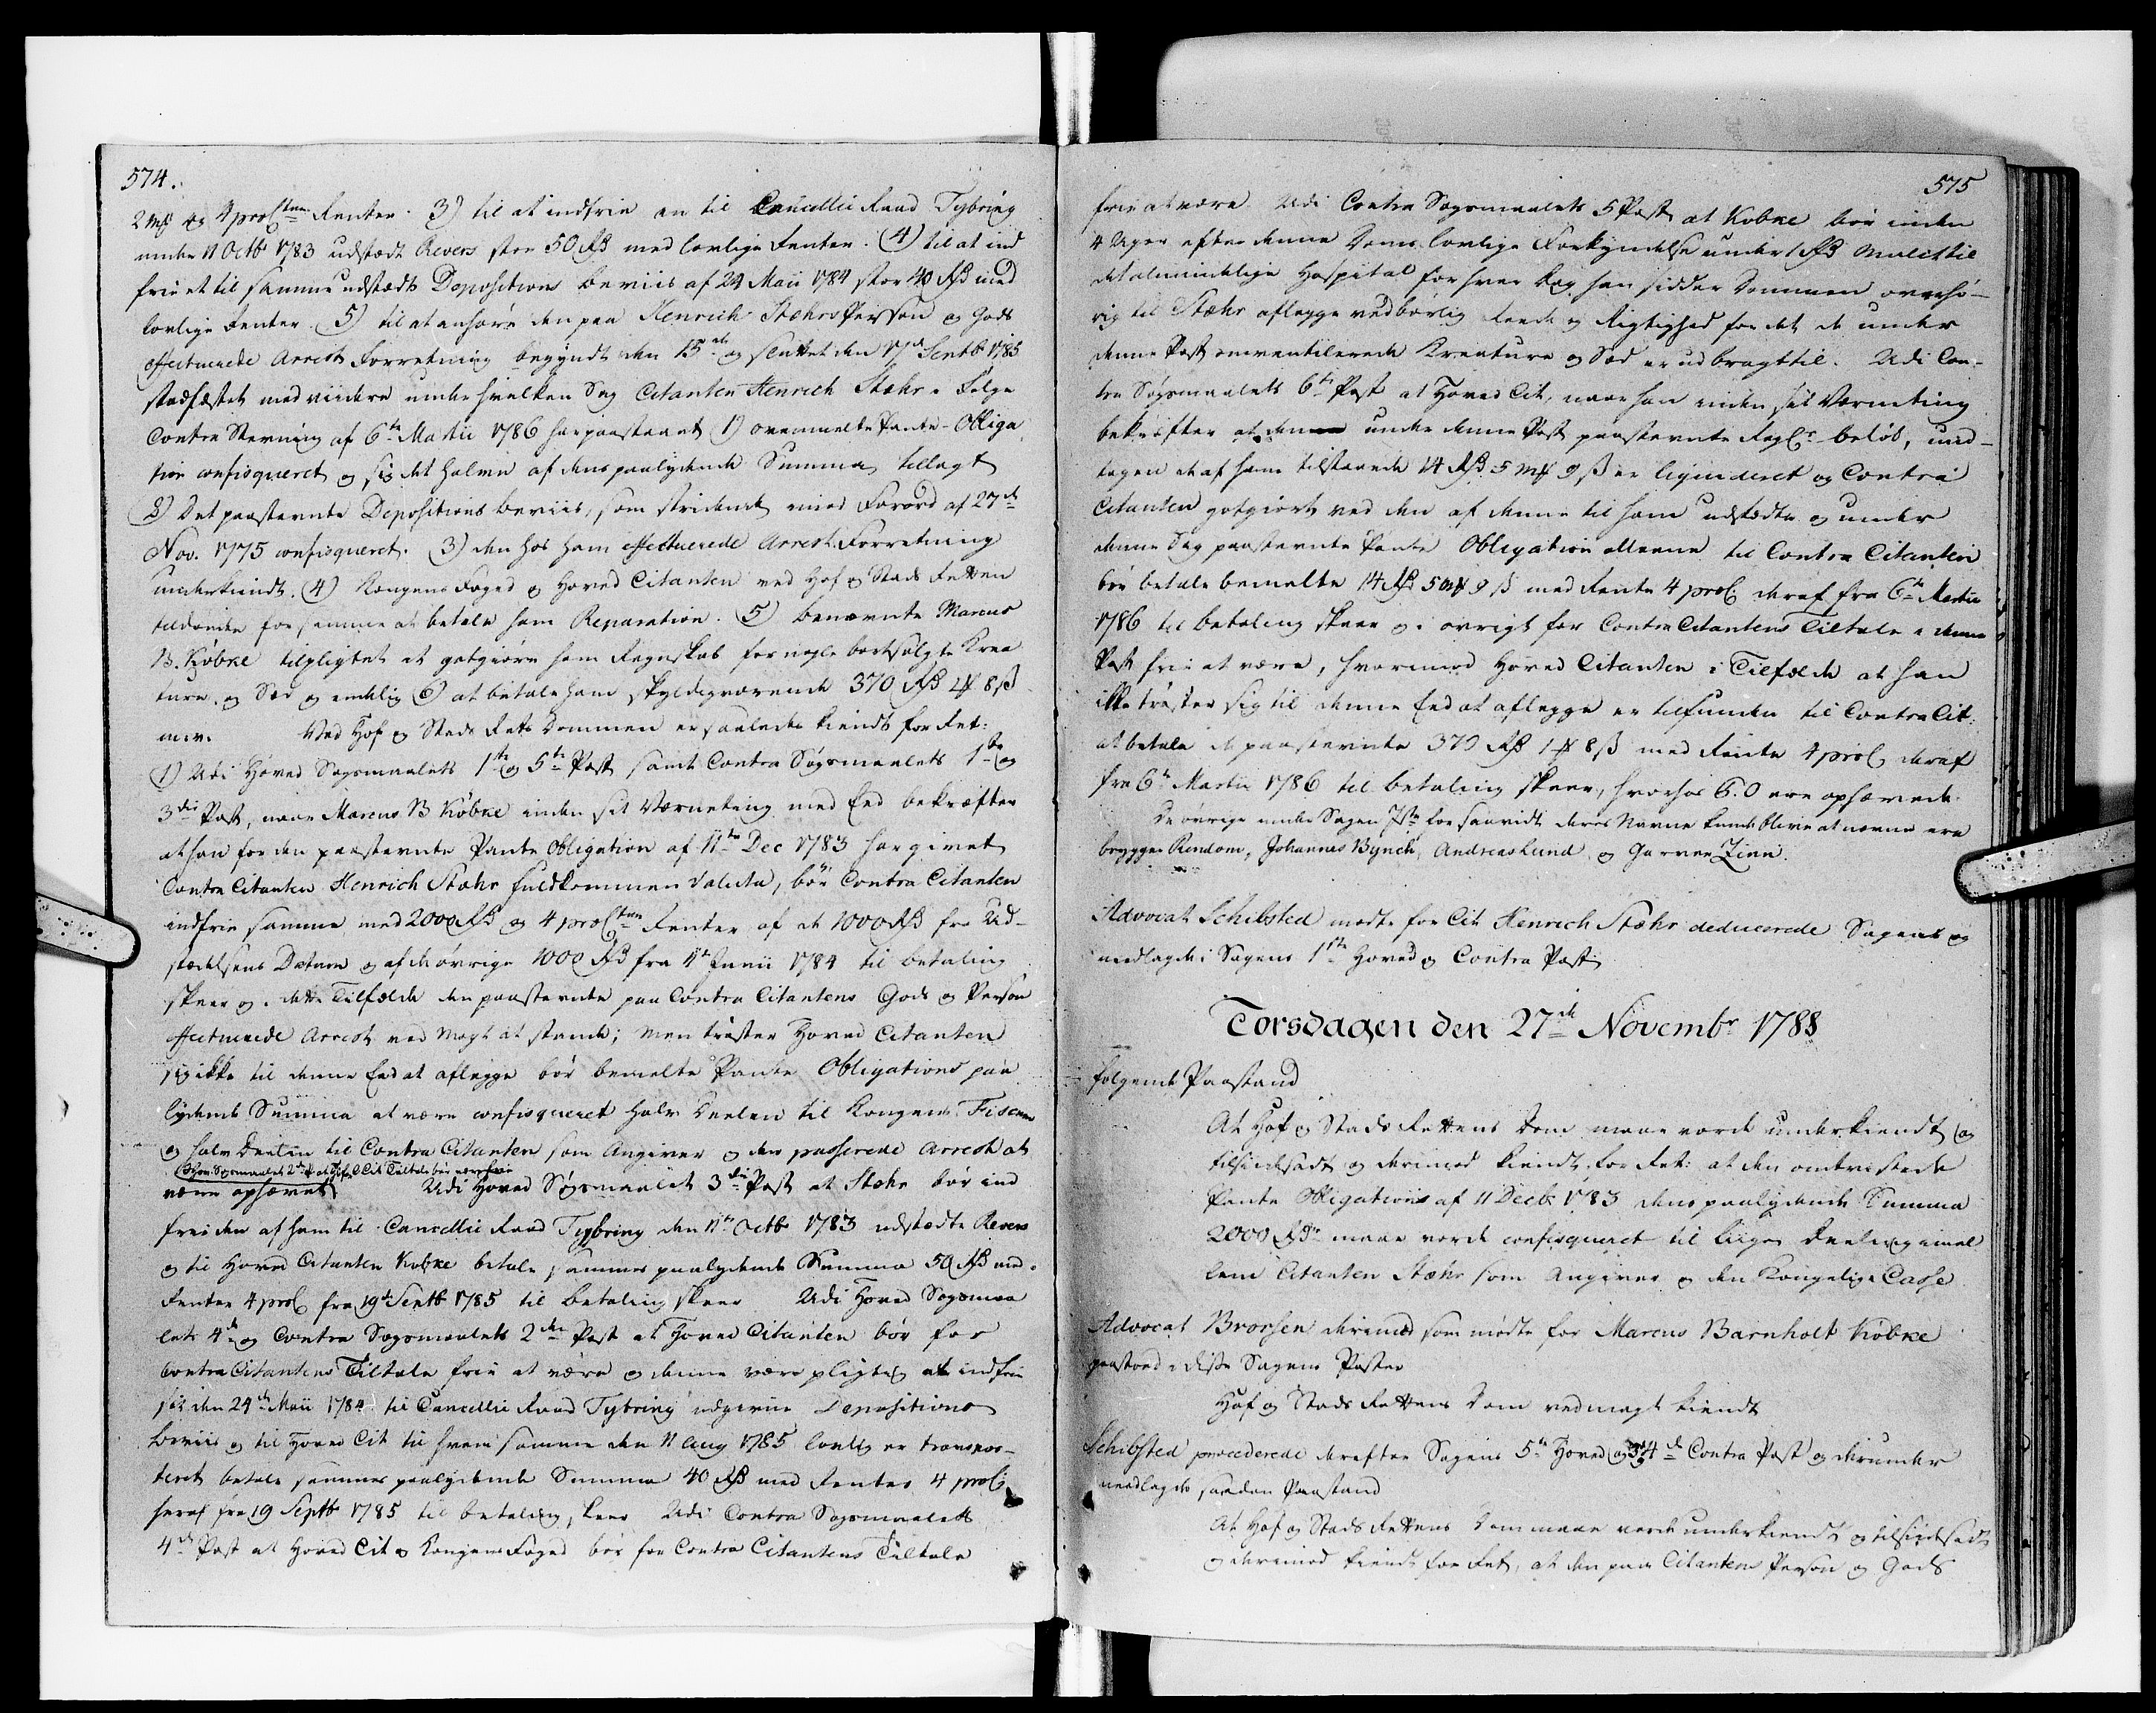 574.
2 mk og 4 proCtum Renter. 3) til at indfrie en til Cancellie Raad Tybring
under 11 Octb 1783 udstædt Revers stor 50 Rd med lovlige Renter. (4) til at ind
frie et til samme udstædt Depositions beviis af 24 Maii 1784 stor 40 Rd med
lovlige Renter. (5) til at anhøre den paa Henrich Stæhrs Person og Gods
effectuerede Arrest Forretning begyndt den 15de og sluttet den 17d Septb 1785
stadfæstet med videre under hvilken Sag Citanten Henrich Stæhr i Følge
Contra Stevning af 6te Martii 1786 har paastaaet 1) ovenmelte Pante-Obliga
tion confisqueret og sig det halve af dens paalydende Summa tillagt
2) Det paastevnte Depositions beviis, som stridende mod Forord af 27de
Nov. 1775 confisqueret. (3) den hos ham effectuerede Arrest Forretning
underkiendt. (4) Kongens Foged og Hoved Citanten ved Hof og Stads Retten
tildømte for samme at betale ham Reparation. (5) benævnte Marcus
B. Købke tilpligtet at gotgiøre ham Regnskab for nogle bortsolgte Krea
ture og Sæd og endelig 6) at betale ham skyldigværende 370 Rd 1 mk 8 ß
m.v. Ved Hof og Stads Rets Dommen er saaledes kiendt for Ret:
(1) Udi Hoved Søgsmaalets 1te og 5te Post samt Contra Søgsmaalets 1te og
3die Post, naar Marcus B Købke inden sit Værneting med Eed bekræfter
at han for den paastevnte Pante Obligation af 11te Dec 1783 har givet
Contra Citanten Henrich Stæhr fuldkommen Valuta, bør Contra Citanten
indfrie samme med 2000 Rd og 4 proCtum Renter af de 1000 Rd fra Ud-
stædelsens Datum og af de øvrige 1000 Rd fra 11te Junii 1784 til betaling
skeer og i dette Tilfælde den paastevnte paa Contra Citantens Gods og Person
effectuerede Arrest ved Magt at stande; men trøster Hoved Citanten
sig ikke til denne Eed at aflegge bør bemelte Pante Obligations paa
lydende Summa at være confisqueret halv Deelen til Kongens Fiscum
og halv Deelen til Contra Citanten som Angiver og den passerede Arrest at
være ophævet Udi Hoved Søgsmaalet 3die Post at Stæhr bør ind
frie den af ham til Cancellie Raad Tybring den 11te Octb 1783 udstædte Revers
og til Hoved Citanten Købke betale sammes paalydende Summa 50 Rd med
Renter 4 proC fra 19de Septb 1785 til betaling skeer Udi Hoved Søgsmaa
lets 4de og Contra Søgsmaalets 2den Post at Hoved Citanten bør for
Contra Citantens Tiltale frie at være og denne være pligtig at indfrie
sit den 24de Maii 1784 til Cancellie Raad Tybring udgivne Depositions
beviis og til Hoved Cit til hvem samme den 11 Aug 1785 lovlig er transpor-
teret betale sammes paalydende Summa 40 Rd med Renter 4 proC
heraf fra 19 Septb 1785 til betaling skeer Udi Contra Søgsmaalets
4de Post at Hoved Cit og Kongens Foged bør for Contra Citantens Tiltale
575
frie at være. Udi Contra Søgsmaalets 5 Post at Købke bør inden
4 Uger efter denne Doms lovlige Forkyndelse under 1 Rd Mulct til
det almindelige Hospital for hver Dag han sidder Dommen overhø-
rig til Stæhr aflegge vedbørlig Rede og Rigtighed for det de under
denne Post omventilerede Kreature og Sæd er udbragt til. Udi Con-
tra Søgsmaalets 6te Post at Hoved Cit, naar han inden sit Værneting
bekræfter at den under denne Post paastevnte beløb, und-
tagen de af ham tilstaaede 14 Rd 5 mk 9 ß er liqvideret og Contra
Citanten gotgiort ved den af denne til ham udstædte og under
denne Sag paastevnte Pante Obligation allene til Contra Citanten
bør betale bemelte 14 Rd 5 mk 9 ß med Rente 4 proC deraf fra 6te Martii
1786 til betaling skeer og i øvrigt for Contra Citantens Tiltale i denne
Post frie at være, hvorimod Hoved Citanten i Tilfælde at han
ikke trøster sig til denne Eed at aflegge er tilfunden til Contra Cit:
at betale de paastevnte 370 Rd 1 mk 8 ß med Rente 4 proC deraf
fra 6te Martii 1786 til betaling skeer, hvorhos C. O ere ophævede.
De øvrige under Sagen for saavidt deres Navne kunde blive at nævne ere
brygger Rendom, Johannes Bynch, Andreas Lund og Garver Zinn.
Advocat Schibsted mødte for Cit Henrich Stæhr deducerede Sagen og
nedlagde i Sagens 1ste Hoved og Contra Post
Torsdagen den 27de Novembr 1788
følgende Paastand
At Hof og Stads Rettens Dom maae vorde underkiendt og
tilsidesadt og derimod kiendt for Ret: at den omtvistede
Pante Obligations af 11 Decb. 1783 dens paalydende Summa
2000 Rdr maae vorde confisqueret til liige Deeling imel
lem Citanten Stæhr som Angiver og den Kongelige Casse
Advocat Brorsen derimod som mødte for Marcus Barnholt Købke
paastod i disse Sagens Poster
Hof og Stads Rettens Dom ved magt kiendt
Schibsted procederede derefter Sagens 5te Hoved og 3 og 4de Contra Post og derunder
nedlagde saadan Paastand
At Hof og Stads Rettens Dom maae vorde underkiendt og tilsidesadt
og derimod kiendt for Ret, at den paa Citantens Person og Gods